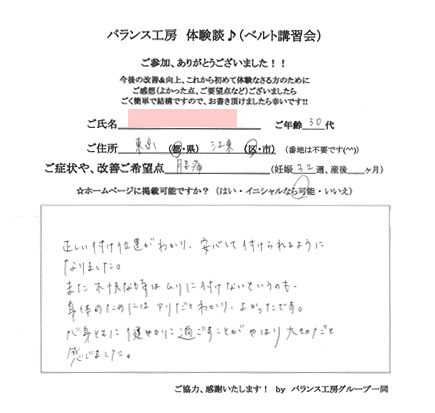 バランス工房 体験談♪(ベルト講習会)
ご参加、ありがとうございました！！
今後の改善&向上、これから初めて体験なさる方のために
ご感想(よかった点、ご要望点など)ございましたら
ごく簡単で結構ですので、お書き頂けましたら幸いです!!
ご氏名 ご年齢 30代
ご住所 東京 (都・県) 江東 (区・市) (番地は不要です(^^))
ご症状や、改善ご希望点 腰痛 (妊娠 32週、産後 ヶ月)
☆ホームページに掲載可能ですか？ (はい・イニシャルなら可能・いいえ)
正しい付け位置がわかり、安心して付けられるように
なりました。
また不快な時はムリに付けないというのも、
身体のためにはアリだとわかり、よかったです。
心身ともに健やかに過ごすことがやはり大切だと
感じました。
ご協力、感謝いたします！ by バランス工房グループ一同